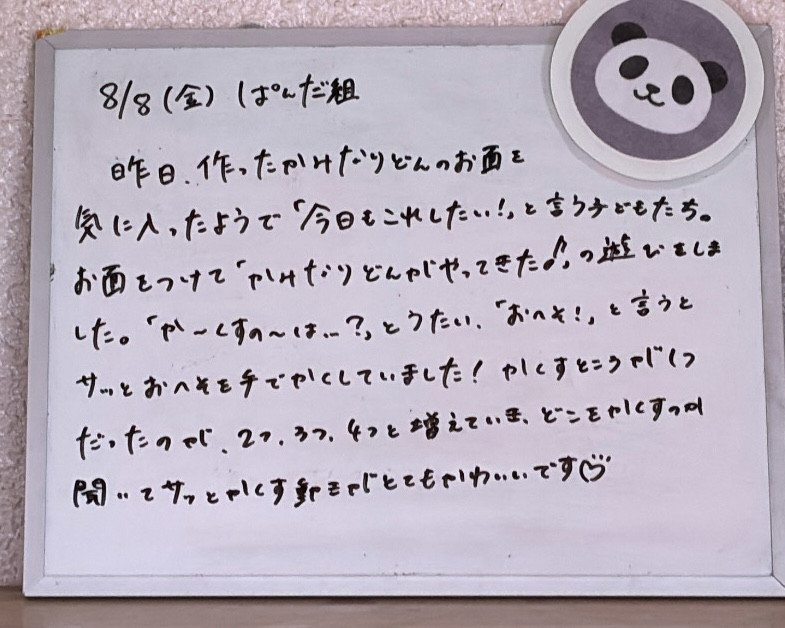 8/8(金) ぱんだ組
昨日、作ったかみなりどんのお面を
気に入ったようで「今日もこれしたい!」と言う子どもたち。
お面をつけて「かみなりどんがやってきた♪」の遊びをしま
した。「か〜くすの〜は…?」とうたい、「おへそ!」と言うと
サッとおへそを手でかくしていました!かくすところが1つ
だったのが、2つ、3つ、4つと増えていき、どこをかくすのか
聞いてサッとかくす動きがとてもかわいいです♡